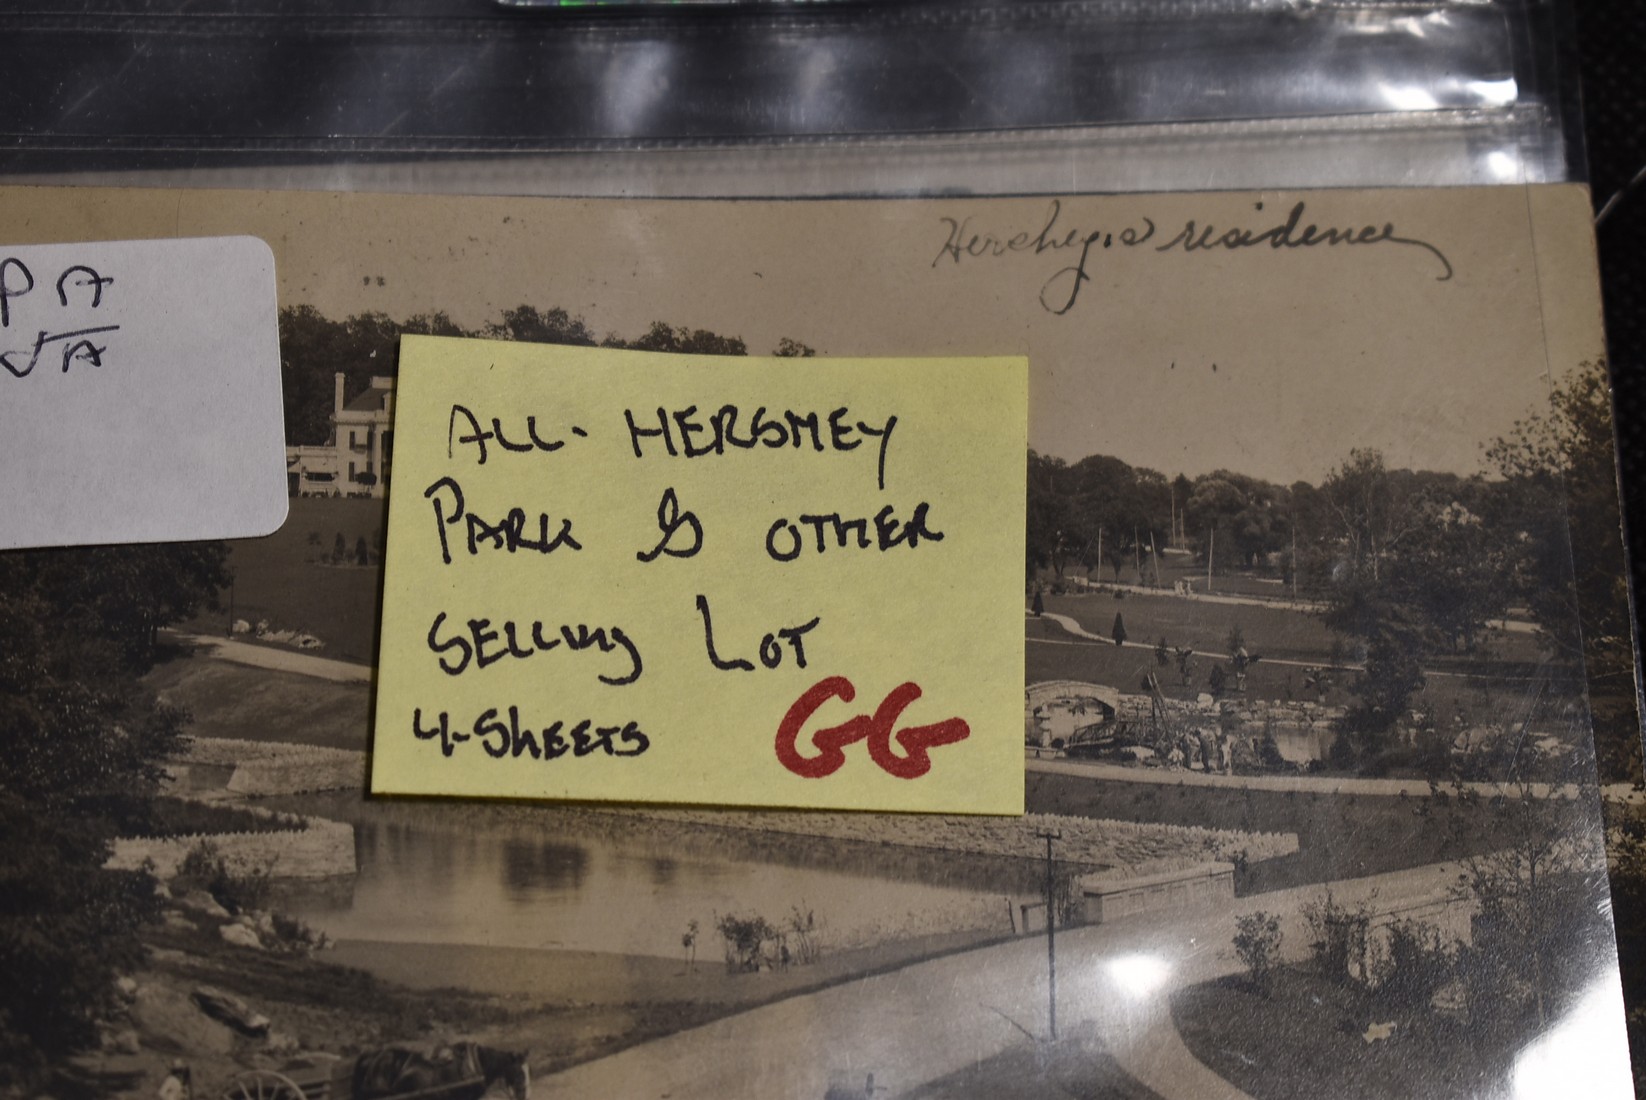 Hershey's residence
PA
VA
ALL- HERSHEY
PARK & OTHER
SELLING LOT
4-SHEETS GG